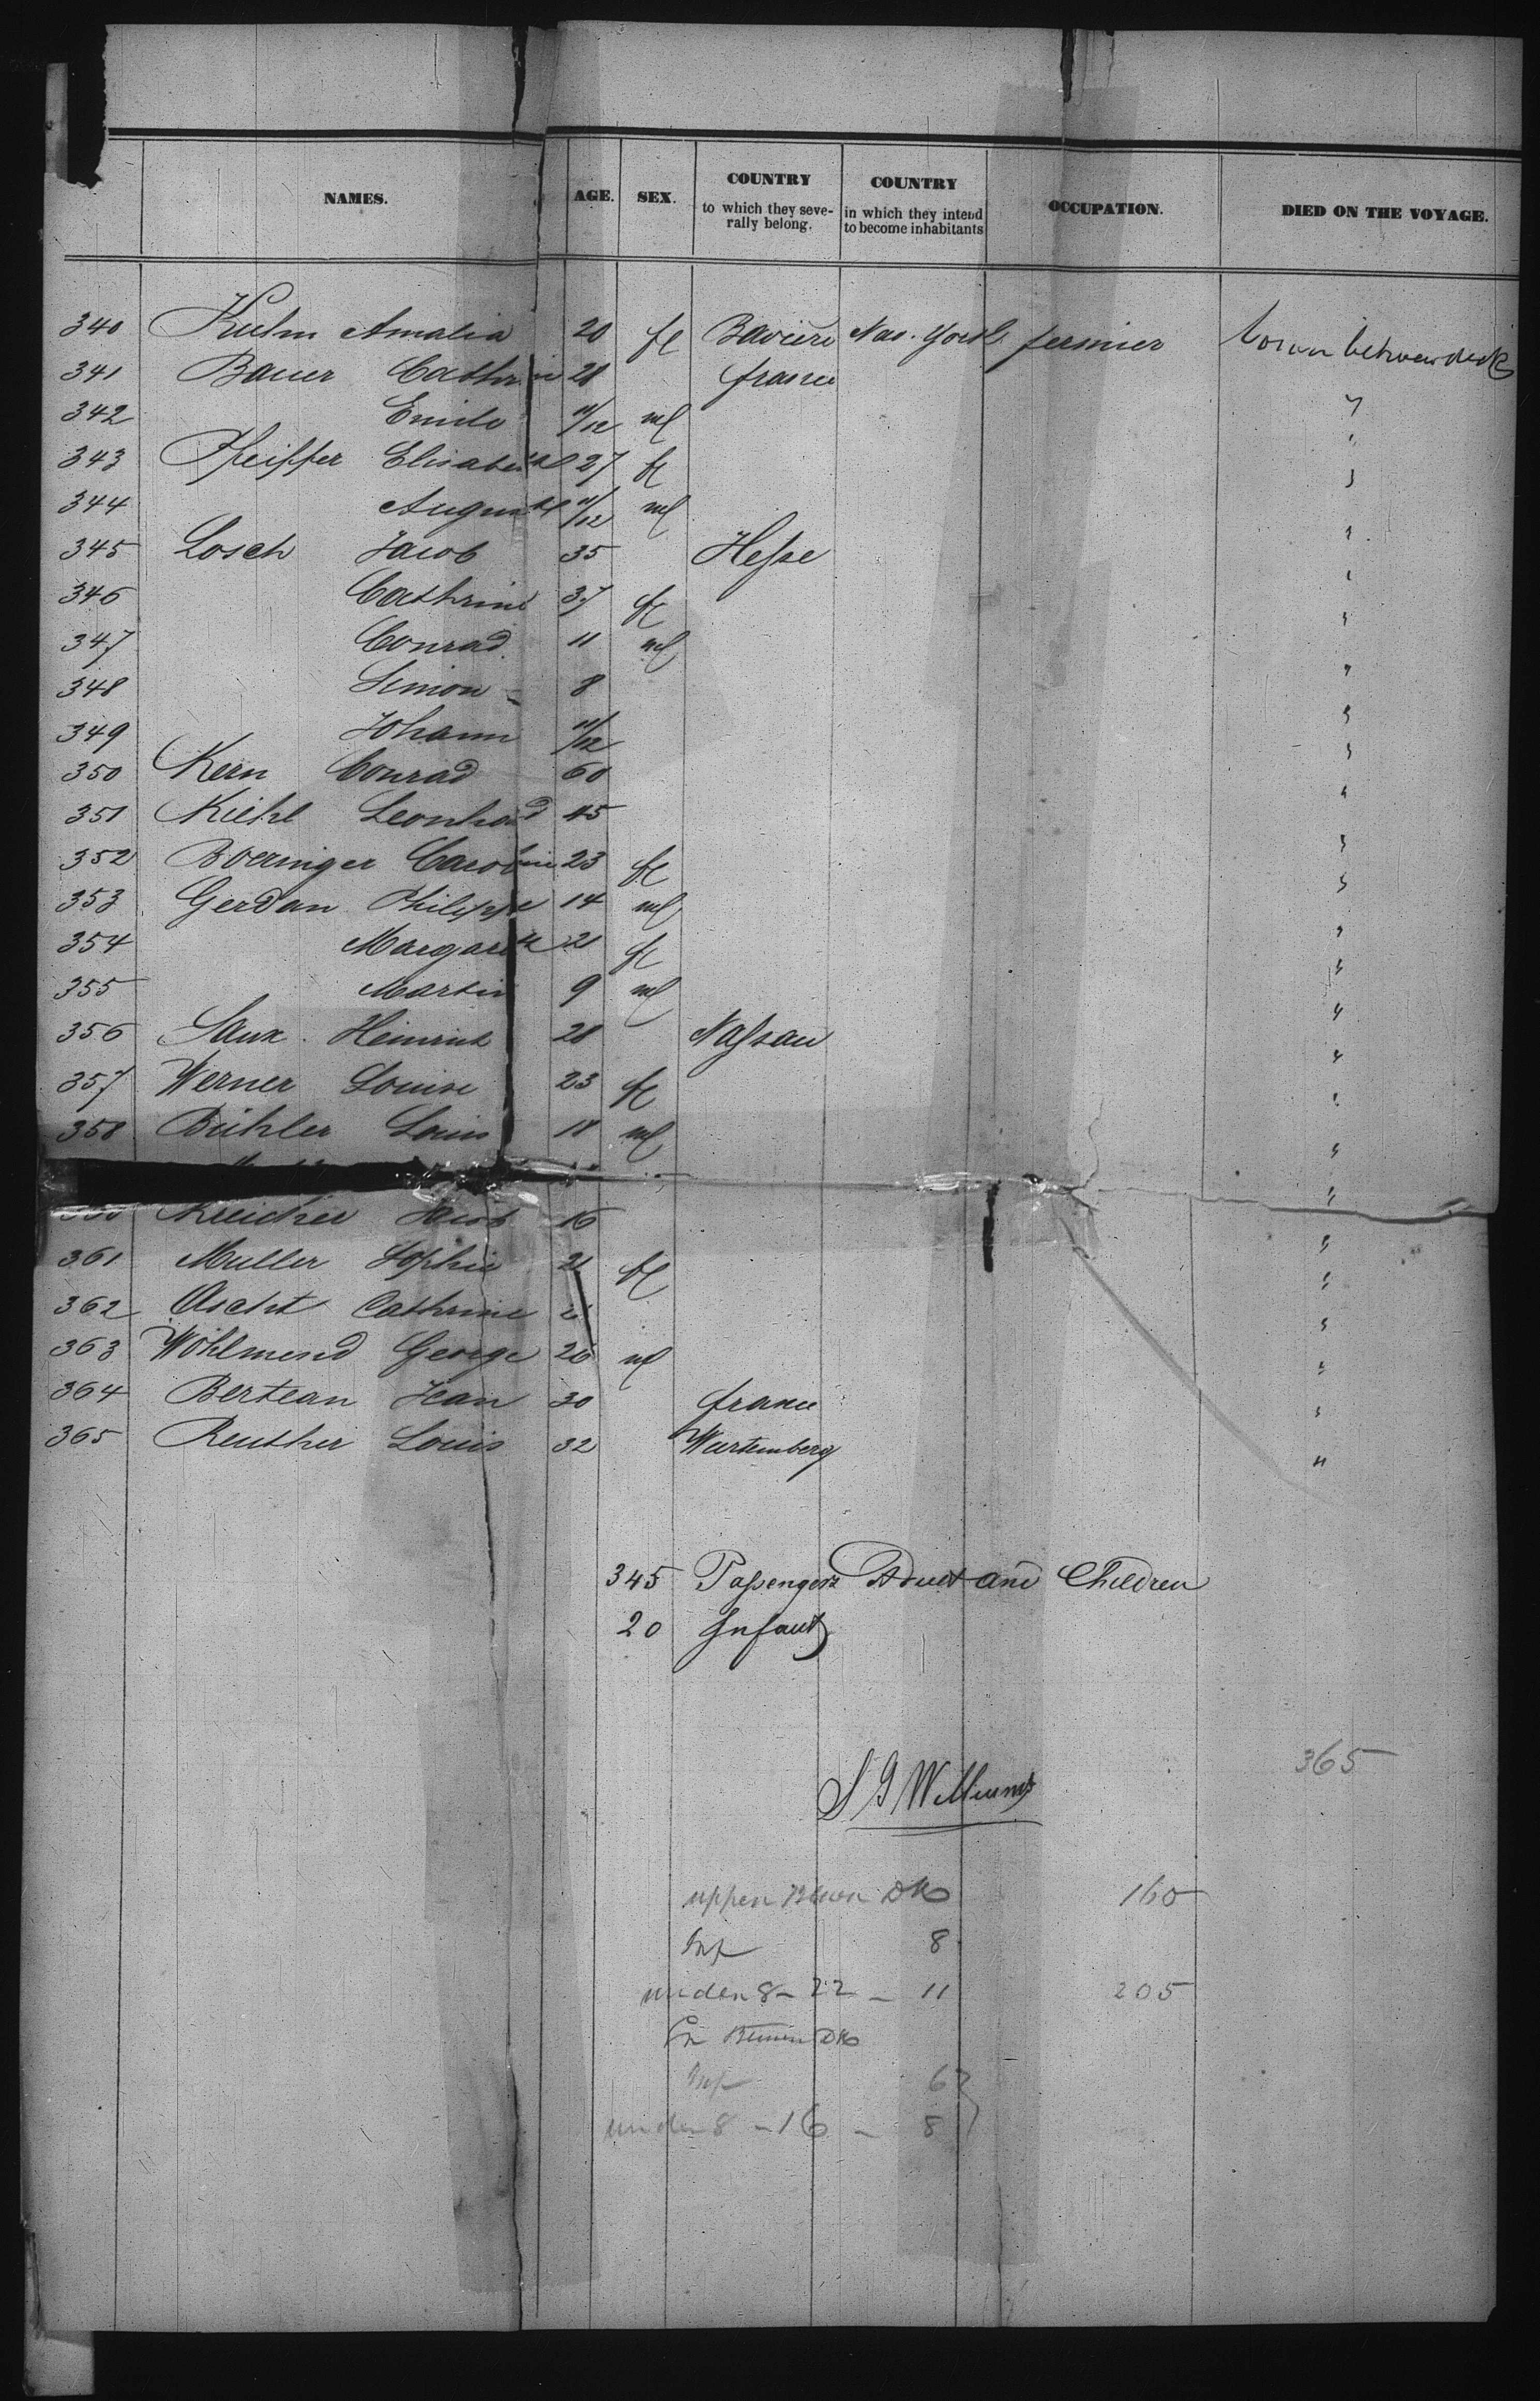 NAMES. AGE. SEX. COUNTRY to which they seve- rally belong. COUNTRY in which they intend to become inhabitants OCCUPATION. DIED ON THE VOYAGE.
340 Kuhn Amalia 20 fl Baviere New. York fermier between deck
341 Bauer Cathrin 28 france
342 Emile 11/12 ml "
343 Pfeiffer Elisabeth 27 fl "
344 August 11/12 ml "
345 Losch Jacob 35 Hesse "
346 Cathrine 37 fl "
347 Conrad 11 ml "
348 Simon 8 "
349 Johann 11/12 "
350 Kern Conrad 60 "
351 Kiehl Leonhard 45 "
352 Boeringer Caroline 23 fl "
353 Gerdan Philippe 14 ml "
354 Margareth 21 fl "
355 Martin 9 ml "
356 Saux Heinrich 28 Nassau "
357 Werner Louise 23 fl "
358 Bühler Louis 18 ml "
Jacob 16 "
361 Muller Sophie 21 fl "
362 Ascht Cathrine "
363 Wohlmend George 26 ml "
364 Bertean Jean 30 france "
365 Reuther Louis 32 Wurtemberg "
345 Passengers Adult and Children
20 Infants
365
S G Williams
upper DK 160
Inf 8
under 8 - 22 - 11 205
DK
Inf 6
under 8 - 16 - 8